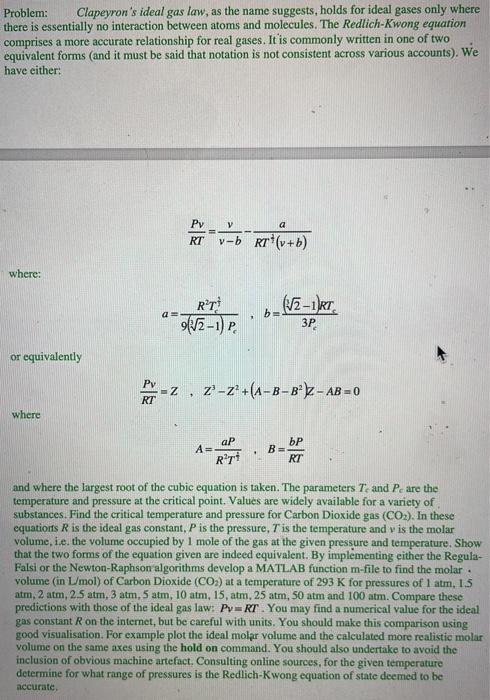 Problem: Clapeyron's ideal gas law, as the name suggests, holds for ideal gases only where
there is essentially no interaction between atoms and molecules. The Redlich-Kwong equation
comprises a more accurate relationship for real gases. It is commonly written in one of two
equivalent forms (and it must be said that notation is not consistent across various accounts). We
have either:
Pv/RT = v/(v-b) - a/(RT^(3/2)(v+b))
where:
a = R²T_c^(5/2)/(9(∛2-1) P_c) , b = (∛2-1)RT_c/(3P_c)
or equivalently
Pv/RT = Z , Z³-Z²+(A-B-B²)Z-AB=0
where
A = aP/(R²T^(5/2)) , B = bP/RT
and where the largest root of the cubic equation is taken. The parameters Tc and Pc are the
temperature and pressure at the critical point. Values are widely available for a variety of
substances. Find the critical temperature and pressure for Carbon Dioxide gas (CO₂). In these
equations R is the ideal gas constant, P is the pressure, T is the temperature and v is the molar
volume, i.e. the volume occupied by 1 mole of the gas at the given pressure and temperature. Show
that the two forms of the equation given are indeed equivalent. By implementing either the Regula-
Falsi or the Newton-Raphson algorithms develop a MATLAB function m-file to find the molar
volume (in L/mol) of Carbon Dioxide (CO₂) at a temperature of 293 K for pressures of 1 atm, 1.5
atm, 2 atm, 2.5 atm, 3 atm, 5 atm, 10 atm, 15, atm, 25 atm, 50 atm and 100 atm. Compare these
predictions with those of the ideal gas law: Pv=RT. You may find a numerical value for the ideal
gas constant R on the internet, but be careful with units. You should make this comparison using
good visualisation. For example plot the ideal molar volume and the calculated more realistic molar
volume on the same axes using the hold on command. You should also undertake to avoid the
inclusion of obvious machine artefact. Consulting online sources, for the given temperature
determine for what range of pressures is the Redlich-Kwong equation of state deemed to be
accurate.